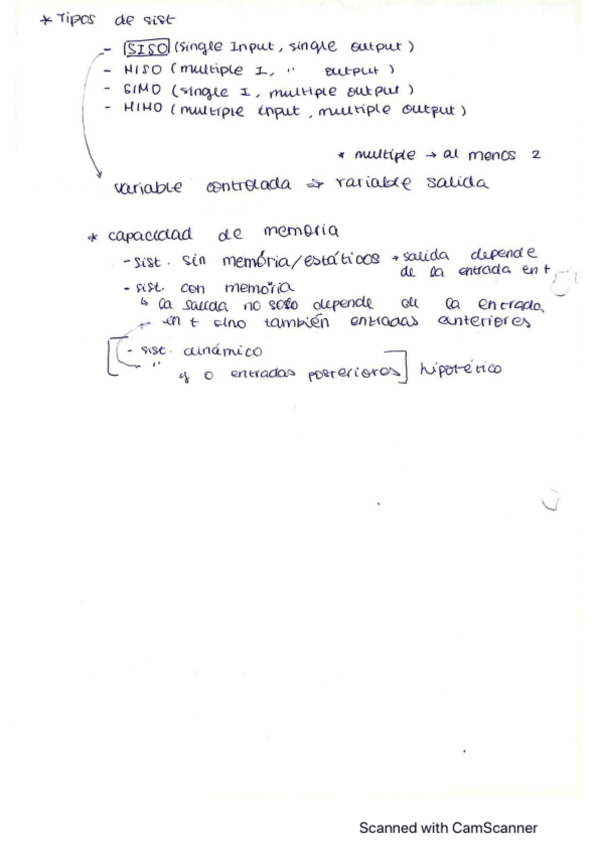 * Tipos de sist
- SISO (single Input, single output)
- MISO (multiple I, " output)
- SIMO (single I, multiple output)
- MIMO (multiple input, multiple output)
* multiple → al menos 2
variable controlada ⇒ variable salida
* capacidad de memoria
- sist. sin memória/estáticos * salida depende
de la entrada en t
- sist. con memoria
↳ la salida no solo depende de la entrada
en t sino también entradas anteriores
[- sist. dinámico
" y o entradas posteriores] hipotético
Scanned with CamScanner